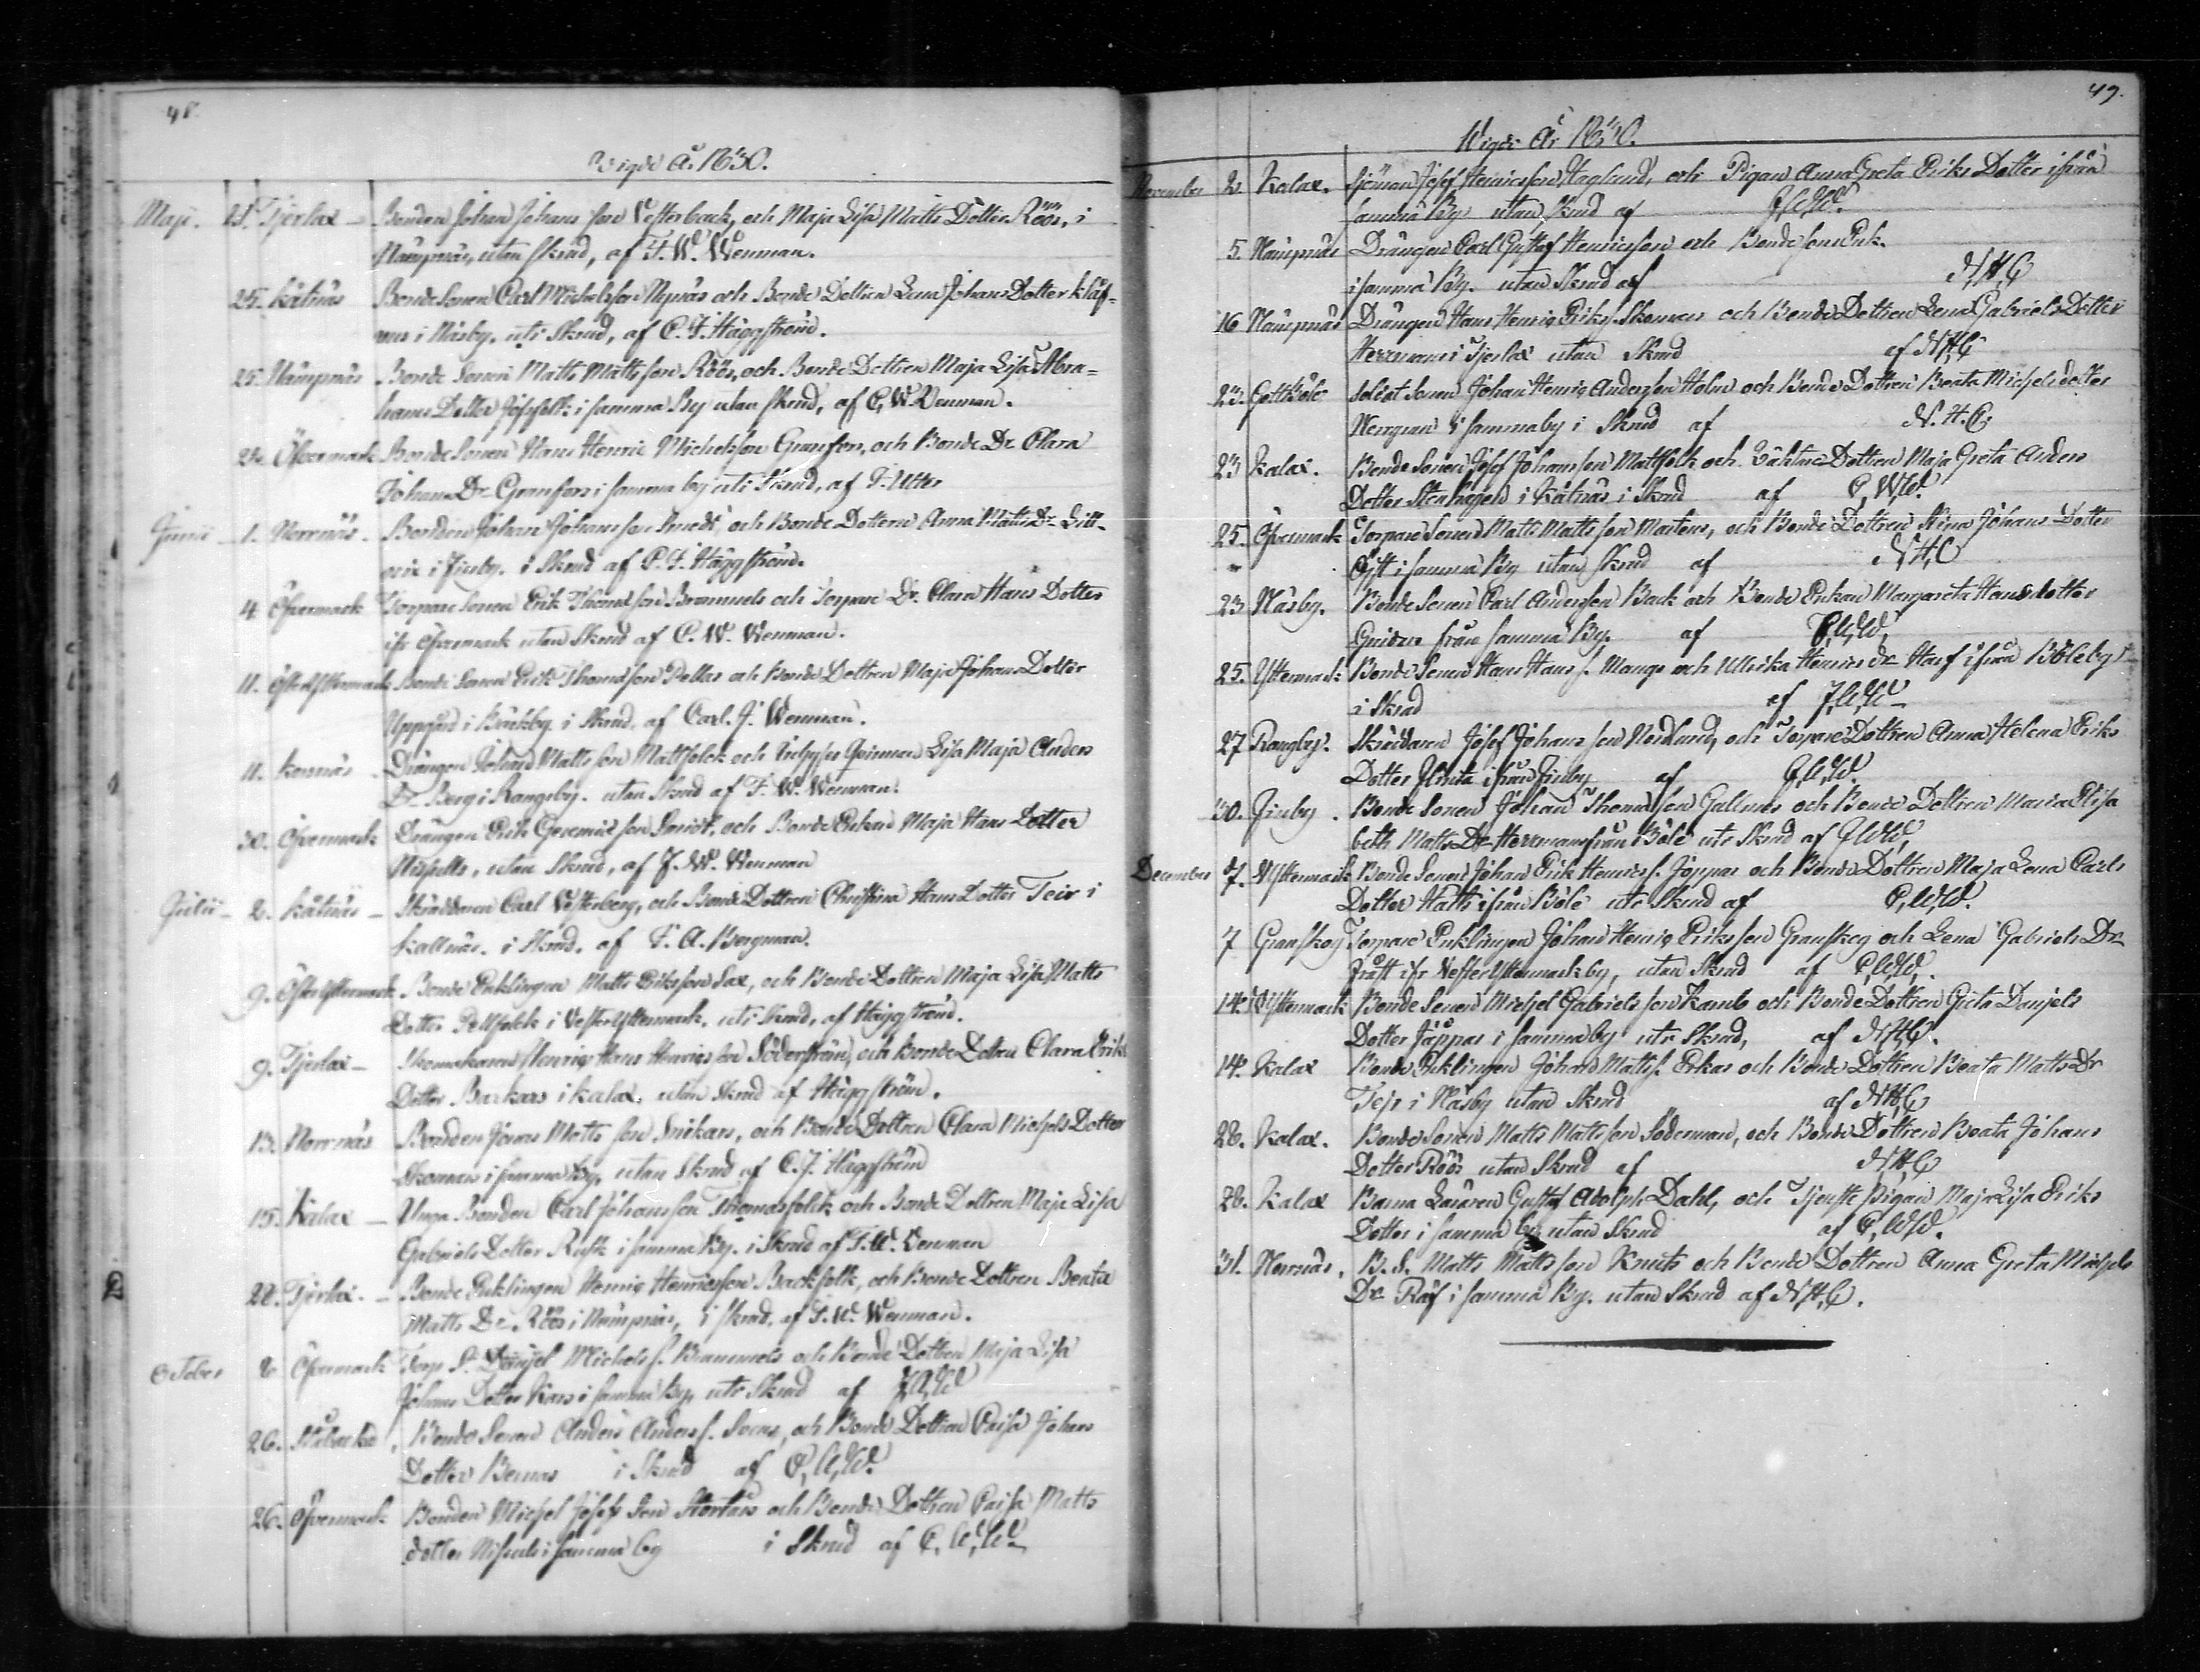 48.
Vigde År 1830.
Maji. 21. Tjerlax – Bonden Johan Johansson Vesterback, och Maja Lisa Matts Dotter Röös, i
Nämpnäs, utan skrud, af F. W. Wenman.
25. Kåtnäs Bonde Sonen Carl Michelsson Nynäs och Bonde Dottren Lena Johans Dotter Klåf-
i Näsby. uti Skrud, af C. J. Häggström.
25. Nämpnäs Bonde Sonen Matts Mattsson Röös, och Bonde Dottren Maja Lisa Abra-
hams Dotter Josefolk i samma By utan skrud, af C. W. Wenman.
Öfvermark Bonde Sonen Hans Henric Michelsson Granfors, och Bonde Dr. Clara
Johans Dr Granfors i samma by uti Skrud, af F. Utter
Junii – 1. Norrnäs. Bonden Johan Johansson Smeds och Bonde Dottren Anna Matts Dr
i Finby. i Skrud af C. J. Häggström.
4. Öfvermark Torpare Sonen Erik Thomasson Brommels och Torpare Dr. Clara Hans Dotter
ifr Öfvermark utan Skrud af C. W. Wenman.
11. ÖsterYttermark Bonde Sonen Erik Thomasson Pellas och Bonde Dottren Maja Johans Dotter
Uppgård i Bäckby i Skrud, af Carl. J. Wenman.
11. Kornäs – Drängen Johan Mattsson Mattfolck och Lisa Maja Anders
Dr Berg i Rangsby. utan Skrud af F. W. Wenman.
30. Öfvermark Drängen Erik och Bonde Enkan Maja Hans Dotter
utan Skrud, af F. W. Wenman
Julii – 2. Kåtnäs – Skräddaren Carl Vesterberg, och Bonde Dottren Christina Hans Dotter Teir i
Kallnäs. i Skrud. af F. A. Bergman.
9. ÖsterYttermark Bonde Enklingen Matts Eriksson Sax, och Bonde Dottren Maja Lisa Matts
Dotter Pellfolck i VesterYttermark. uti Skrud, af Häggström.
9. Tjerlax – Skomakaren Henric Hans Henricsson Söderström, och Bonde Dottren Clara Eriks
Dotter Backars i Kalax. utan Skrud af Häggström.
13. Norrnäs Bonden Jonas Mattsson Snikars, och Bonde Dottren Clara Michels Dotter
Skomars i samma By, utan Skrud af C. J. Häggström
15. Kalax – Unga Bonden Carl Johansson Thomasfolck och Bonde Dottren Maja Lisa
Gabriels Dotter Rusk i samma By. i Skrud af F. W. Wenman
22. Tjerlax. – Bonde Enklingen Henric Henricsson Backfolk, och Bonde Dottren Beata
Matts Dr Röös i Nämpnäs, i skrud, af F. W. Wenman.
October 2. Öfvermark Torp. S. Danjel Michels s. Brommels och Bonde Dottren Maja Lisa
Johans Dotter Kars i samma By, uti Skrud af F. W. W
26. Bonde Sonen Anders Anders s. och Bonde Dottren Caisa Johans
Dotter Bernas i Skrud af C. W. W.
26. Öfvermark Bonden Michel Josefs Son Stortårs och Bonde Dottren Caisa Matts
dotter Nissuls i samma by i Skrud af C. W. W.
49.
Wigde År 1830.
November 2. Kalax. Sjöman Josef Henricsson Haglund, och Pigan Anna Greta Eriks Dotter ifrån
samma By utan Skrud af F. W. W.
5. Nämpnäs Drängen Carl Gustaf Henricsson och Bonde
i samma By. utan Skrud af N. H. C
16 Nämpnäs Drängen Hans Henric Eriks s. Skomars och Bonde Dottren Lena Gabriels Dotter
Herrmans i Tjerlax utan Skrud af N. H. C
23. Gottböle Soldat Sonen Johan Henric Andersson Holm och Bonde Dottren Beata Michels dotter
Norrgran i samma by i Skrud af N. H. C.
23 Kalax. Bonde Sonen Josef Johansson Mattfolk och Dottren Maja Greta Anders
Dotter Stenhagen i Kåtnäs i Skrud af C. W. W.
25. Öfvermark Torpare Sonen Matts Mattsson Mårtens, och Bonde Dottren Stina Johans Dotter
i samma By utan Skrud af N. H. C
23 Näsby. Bonde Sonen Carl Andersson Back och Bonde Enkan Margareta Hansdotter
från samma By. af C. W. W.
25. Yttermark Bonde Sonen Hans Hans s. Mangs och Ullrika Henrics dr Harf ifrån Böleby
i Skrud af F. W. W –
27 Rangsby. Skräddaren Josef Johansson Nordlund, och Torpare Dottren Anna Helena Eriks
Dotter ifrån Finby af F. W. W.
30. Finby. Bonde Sonen Johan Thomasson Gallnäs och Bonde Dottren Maria Elisa
beth Matts Dr Herrmans från Böle uti Skrud af F. W. W.
December 7. WYttermark Bonde Sonen Johan Erik Henrics s. Joppas och Bonde Dottren Maja Lena Carls
Dotter Hatts ifrån Böle uti Skrud af C. W. W.
7 Granskog Torpare Enklingen Johan Henric Eriksson Granskog och Lena Gabriels Dr
Frått ifr VesterYttermarkby, utan Skrud af C. W. W.
14. WYttermark Bonde Sonen Michel Gabrielsson Kamb och Bonde Dottren Greta Danjels
Dotter Jåppas i samma by uti Skrud, af N. H. C.
14. Kalax Bonde Enklingen Johan Matts s. Erkas och Bonde Dottren Beata Matts Dr
Teir i Näsby utan Skrud af N. H. C
26. Kalax. Bonde Sonen Matts Mattsson Söderman, och Bonde Dottren Beata Johans
Dotter Röös utan Skrud af N. H. C
26. Kalax Barna Läraren Gustaf Adolph Dahl, och Tjenste Pigan Maja Lisa Eriks
Dotter i samma by utan Skrud af C. W. W.
31. Norrnäs. B. S. Matts Mattsson Knuts och Bonde Dottren Anna Greta Michels
Dr Räf i samma By. utan Skrud af N. H. C.